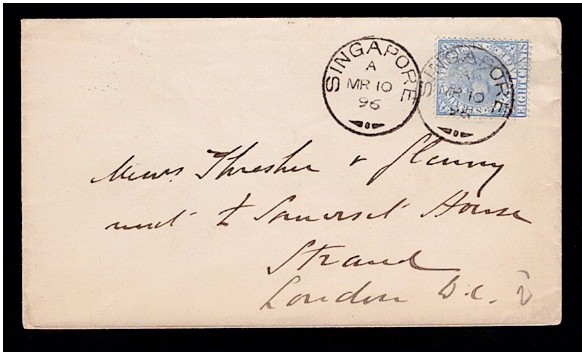 SINGAPORE
A
MR 10
96
SINGAPORE
MR 10
96
EIGHT CENTS
Messrs Thresher & Glenny
next to Somerset House
Strand
London W.C. 2